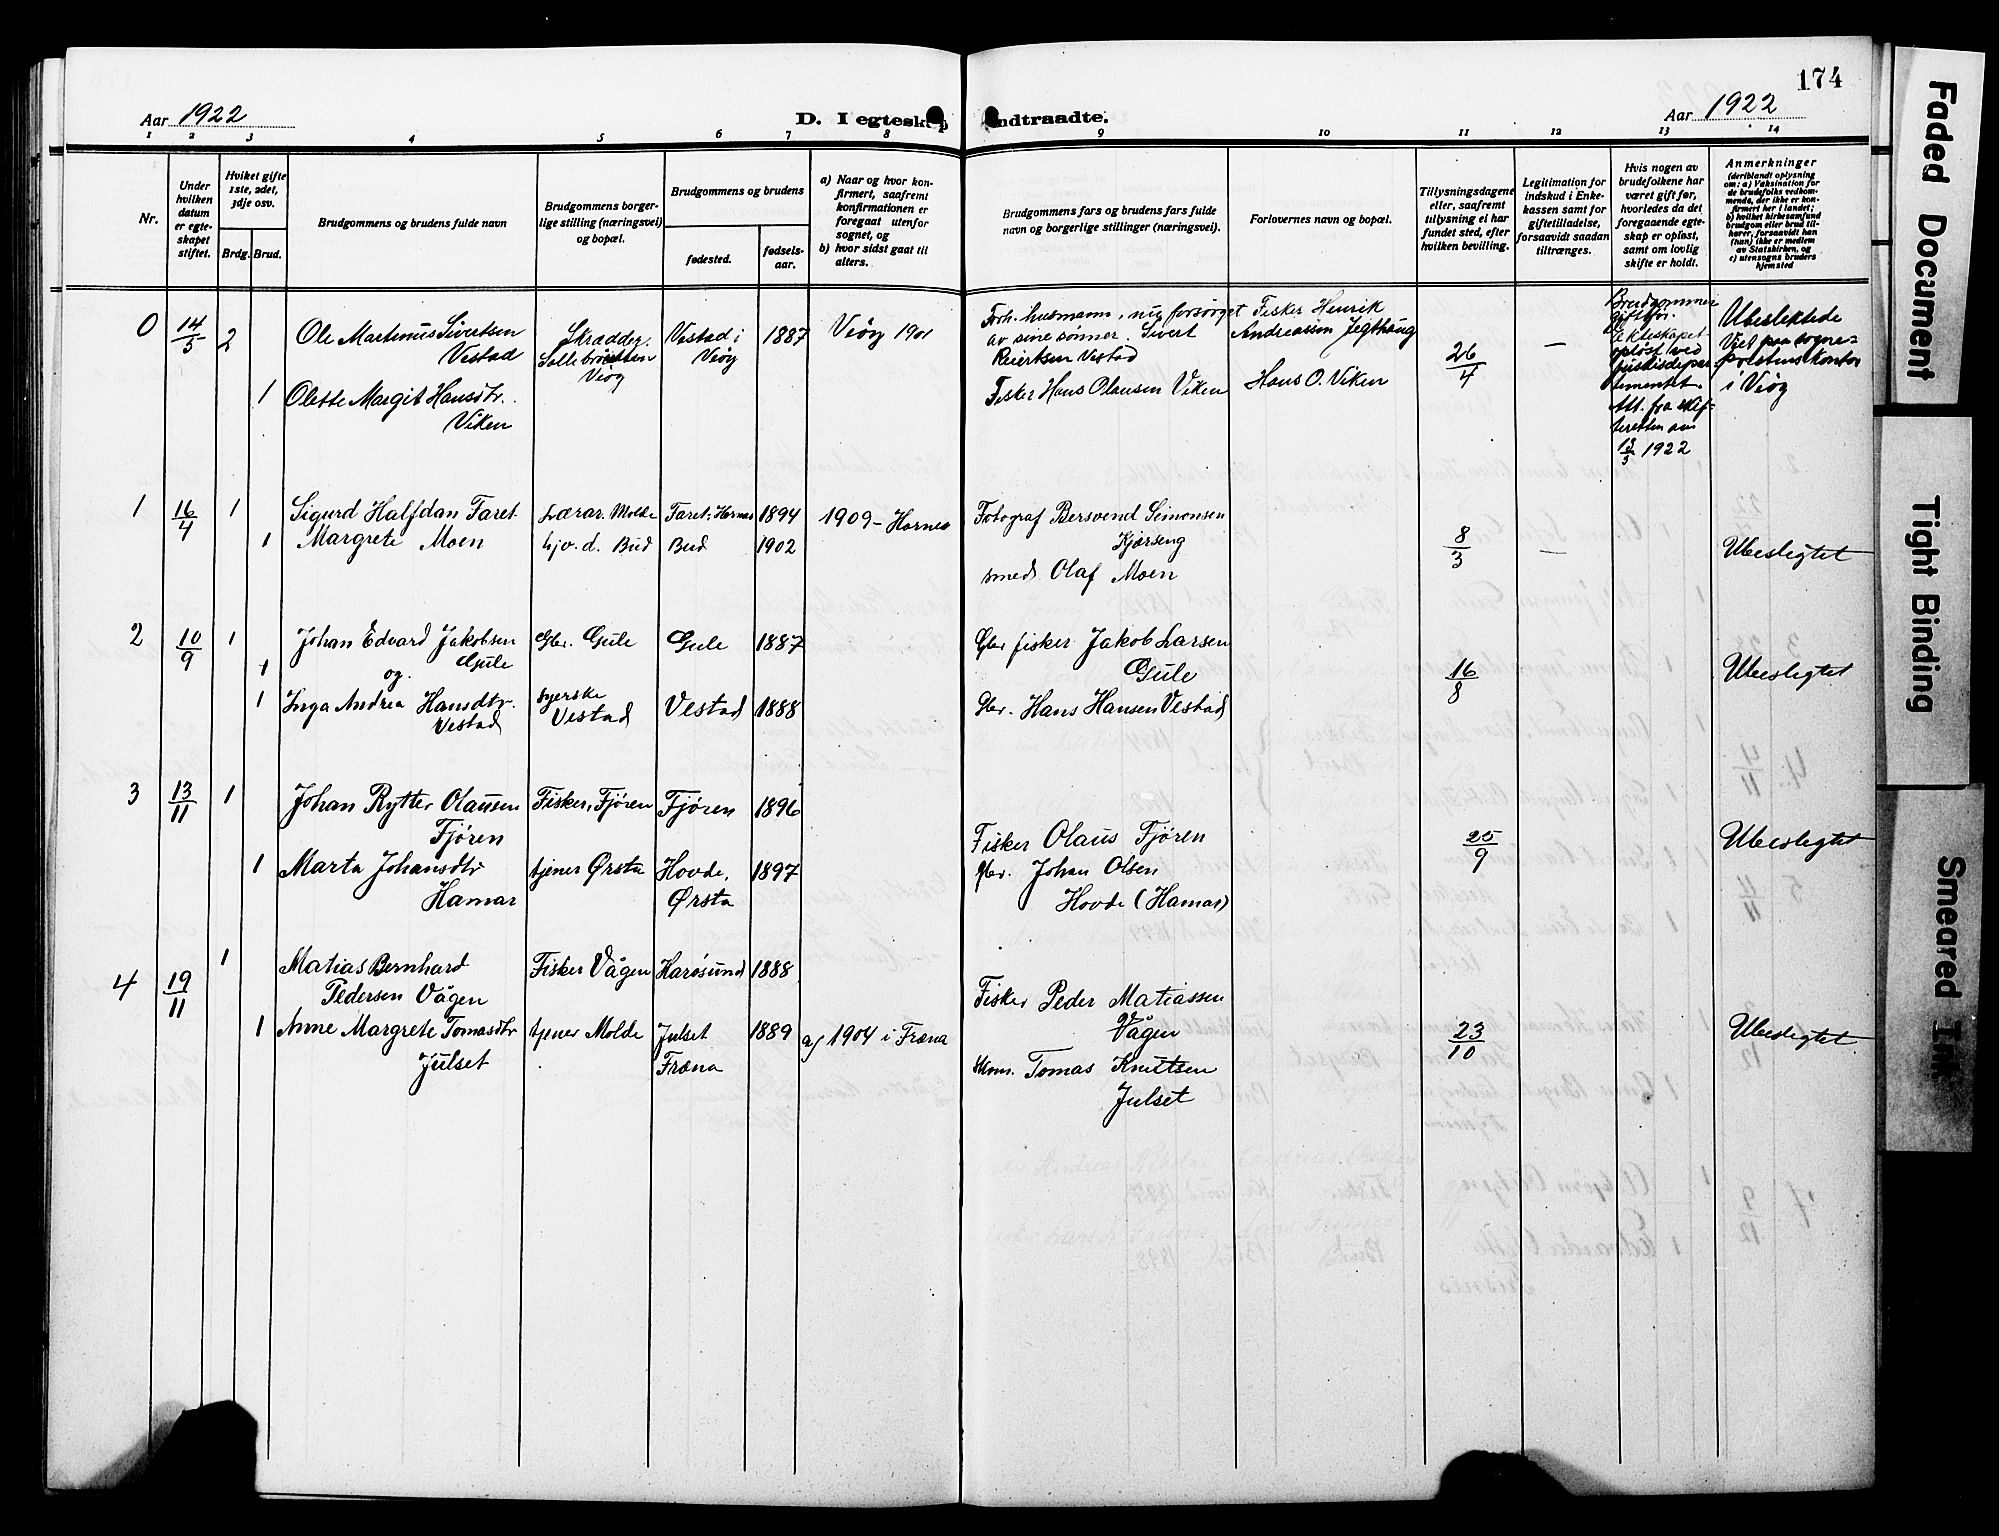 174
Aar 1922
D. I egteskap indtraadte.
Aar 1922
1 2 3 4 5 6 7 8 9 10 11 12 13 14
Nr.
Under hvilken datum er egteskapet stiftet.
Hvilket gifte 1ste, 2det, 3dje osv.
Brdg. Brud.
Brudgommens og brudens fulde navn
Brudgommens borgerlige stilling (næringsvei) og bopæl.
Brudgommens og brudens
fødested.
fødselsaar.
a) Naar og hvor konfirmert, saafremt konfirmationen er foregaat utenfor sognet, og
b) hvor sidst gaat til alters.
Brudgommens fars og brudens fars fulde navn og borgerlige stillinger (næringsvei).
Forlovernes navn og bopæl.
Tillysningsdagene eller, saafremt tillysning ei har fundet sted, efter hvilken bevilling.
Legitimation for indskud i Enkekassen samt for giftetilladelse, forsaavidt saadan tiltrænges.
Hvis nogen av brudefolkene har været gift før, hvorledes da det foregaaende egteskap er opløst, samt om lovlig skifte er holdt.
Anmerkninger (deriblandt oplysning om: a) Vaksination for de brudefolks vedkommende, der ikke er konfirmert her i landet; b) hvilket kirkesamfund brudgom eller brud tilhører, forsaavidt han (hun) ikke er medlem av Statskirken, og c) utensogns bruders hjemsted
0 14/5 2 Ole Martinus Sivertsen Vestad
Skrædder. Vestad i Veøy 1887 Veøy 1901
Forh. husmann, nu forsørget av sine sønner. Sivert Reiertsen Vestad
Fisker Henrik Andreassen Jegthaug
26/4 —
Brudgommen gift før. Ekteskapet opløst ved justisdepartementet. Att. fra skifteretten av 13/5 1922
Ubeslektede Viet paa sogneprestens kontor i Veøy
1 Olette Margit Hansdtr. Viken
Fisker Hans Olausen Viken
Hans O. Viken
1 16/4 1 Sigurd Halfdan Faret
Lærar. Molde Faret, Hornes 1894 1909 - Hornes
Fotograf Bersvend Simonsen Kjørseng
1 Margrete Moen
hjv. d. Bud Bud 1902
smed. Olaf Moen
8/3 — Ubeslegtet
2 10/9 1 Johan Edvard Jakobsen Gule
Gbr. Gule Gule 1887
Gbr fisker Jakob Larsen Gule
1 og.
1 Inga Andrea Hansdtr. Vestad
syerske Vestad Vestad 1888
Gbr. Hans Hansen Vestad
16/8 Ubeslegtet
3 13/11 1 Johan Rytter Olausen Fjøren
Fisker, Fjøren Fjøren 1896
Fisker Olaus Fjøren
1 Marta Johansdtr Hamar
tjener Ørsta Hovde, Ørsta 1897
Gbr. Johan Olsen Hovde (Hamar)
25/9 Ubeslegtet
4 19/11 1 Matias Bernhard Pedersen Vågen
Fisker Vågen Harøsund 1888
Fisker Peder Matiassen Vågen
1 Anne Margrete Tomasdtr Julset
tjener Molde Julset Fræna 1889 a) 1904 i Fræna
Tomas Knutsen Julset
23/10 Ubeslegtet
Faded Document
Tight Binding
Smeared Ink